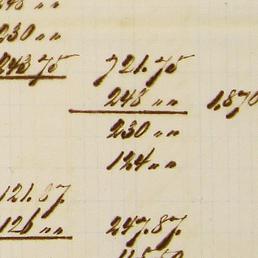 230 〃〃
243 75 721.75
248 〃〃 1,870
230 〃〃
124 〃〃
121.87
126 〃〃 247.87